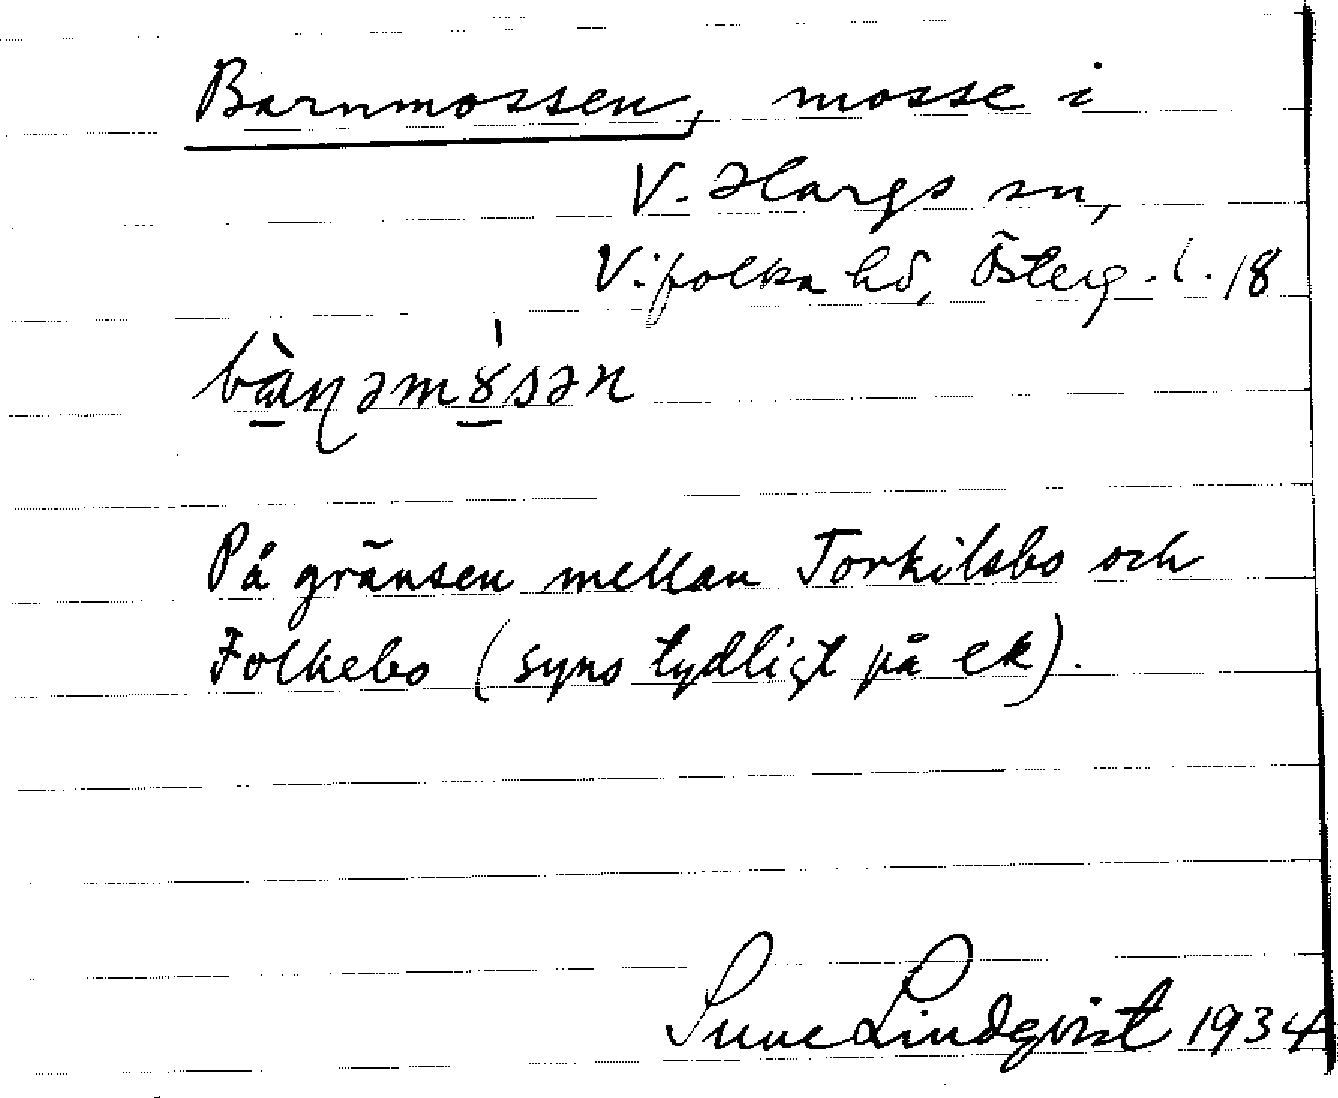 Barnmossen, mosse i
V. Hargs sn,
Vifolka hd, Österg. l. 18
bànəmɤ́sən
På gränsen mellan Torkilsbo och
Folkebo (syns tydligt på ek).
Sune Lindqvist 1934